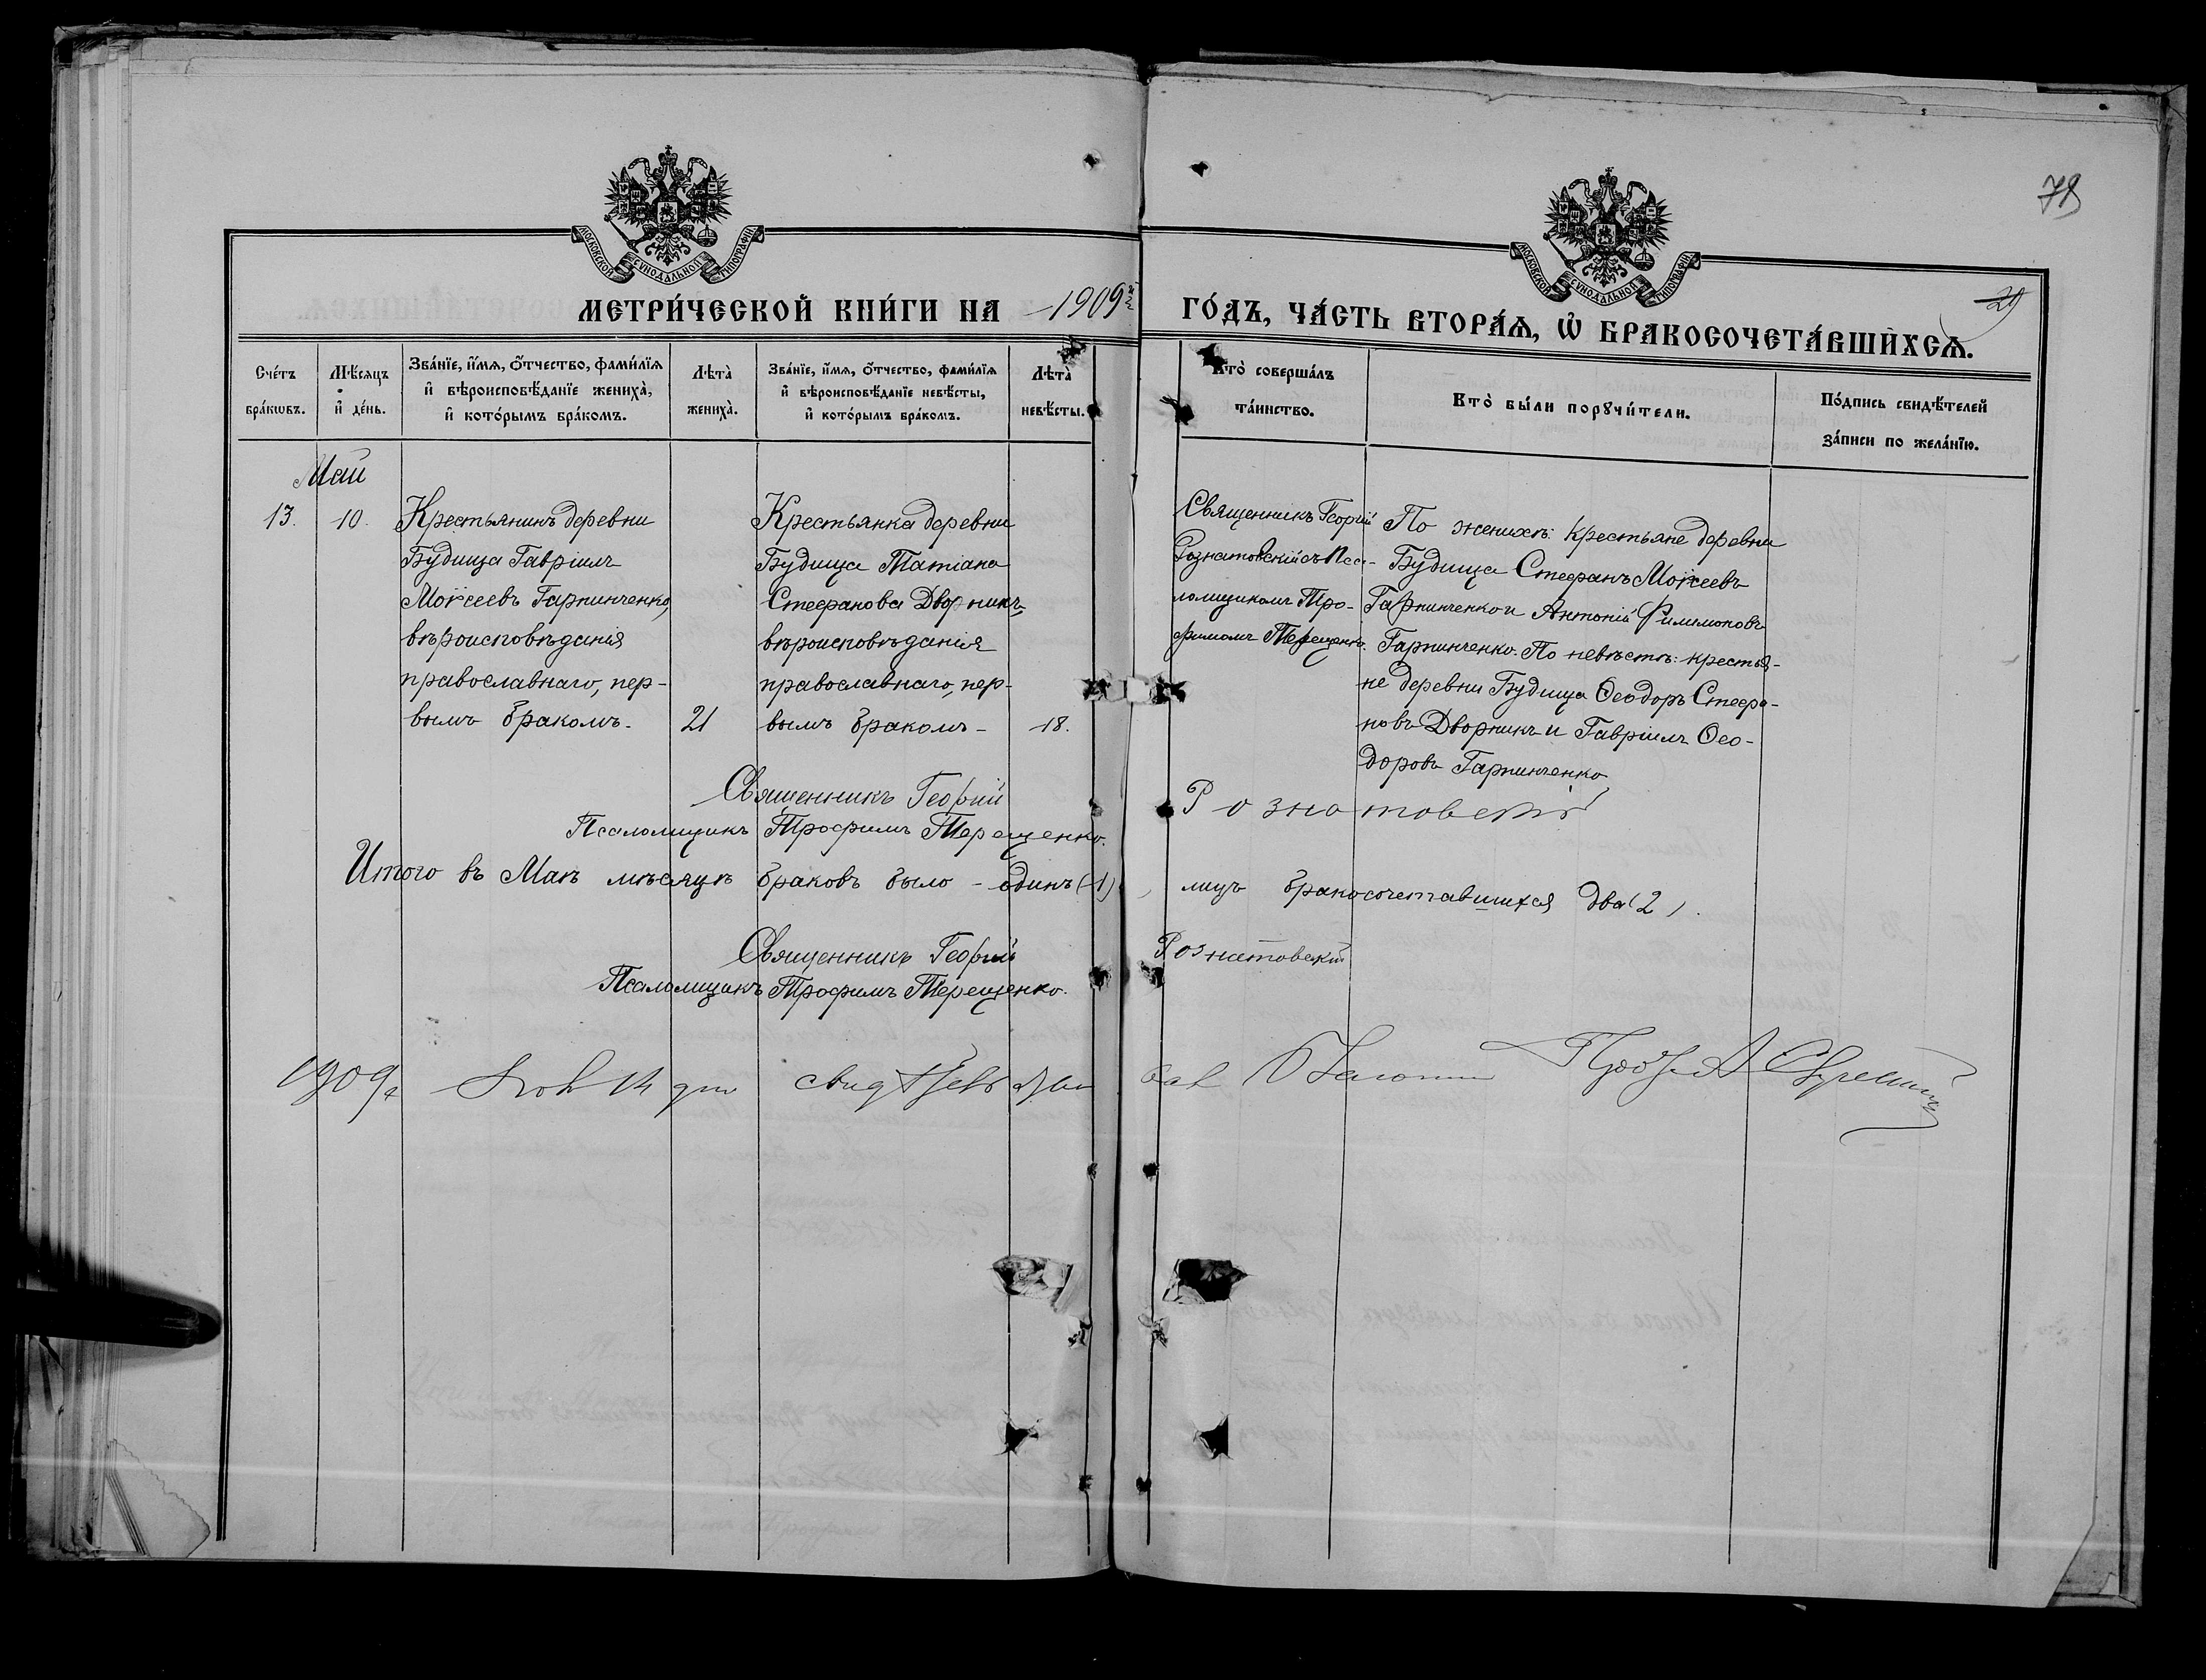 78
МОСКОВСКОЙ СУНОДАЛЬНОЙ ТИПОГРАФІИ
МОСКОВСКОЙ СУНОДАЛЬНОЙ ТИПОГРАФІИ
МЕТРИ́ЧЕСКОЙ КНИ́ГИ НА 1909й ГО́ДЪ, ЧА́СТЬ ВТОРА́Ѧ, Ѽ БРАКОСОЧЕТА́ВШИХСѦ.
29
Сче́тъ бра́кѡвъ.
Мѣ́сяцъ и҆ де́нь.
Зва́нїе, и҆́мѧ, ѻ҆́тчество, фами́лїѧ
и҆ вѣроисповѣ́данїе жениха̀,
и҆ кото́рымъ бра́комъ.
Лѣта̀ жениха̀.
Зва́нїе, и҆́мѧ, ѻ҆́тчество, фами́лїѧ
и҆ вѣроисповѣ́данїе невѣ́сты,
и҆ кото́рымъ бра́комъ.
Лѣта̀ невѣ́сты.
Кто̀ соверша́лъ та́инство.
Кто̀ бы́ли порꙋчи́тели.
По́дпись свидѣ́телей за́писи по жела́нїю.
Май
13.
10.
Крестьянинъ деревни
Будища Гавріилъ
Моѵсеевъ Гарпинченко,
вѣроисповѣданія
православнаго, пер-
вымъ бракомъ.
21
Крестьянка деревни
Будища Татіана
Стефанова Дворникъ,
вѣроисповѣданія
православнаго, пер-
вымъ бракомъ-
18.
Священникъ Георгій
Рознатовскій съ Пса-
ломщикомъ Тро-
фимомъ Терещенко.
По женихѣ: крестьяне деревни
Будища Стефанъ Моѵсеевъ
Гарпинченко и Антоній Филимоновъ
Гарпинченко. По невѣстѣ: крестья-
не деревни Будища Ѳеодоръ Стефа-
новъ Дворникъ и Гавріилъ Ѳео-
доровъ Гарпинченко
Священникъ Георгій Рознатовскій
Псаломщикъ Трофимъ Терещенко.
Итого въ Маѣ мѣсяцѣ браковъ было - одинъ (1), лицъ бракосочетавшихся два (2).
Священникъ Георгій Рознатовскій
Псаломщикъ Трофимъ Терещенко.
1909